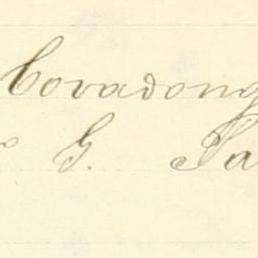 Covadong
G. Sa